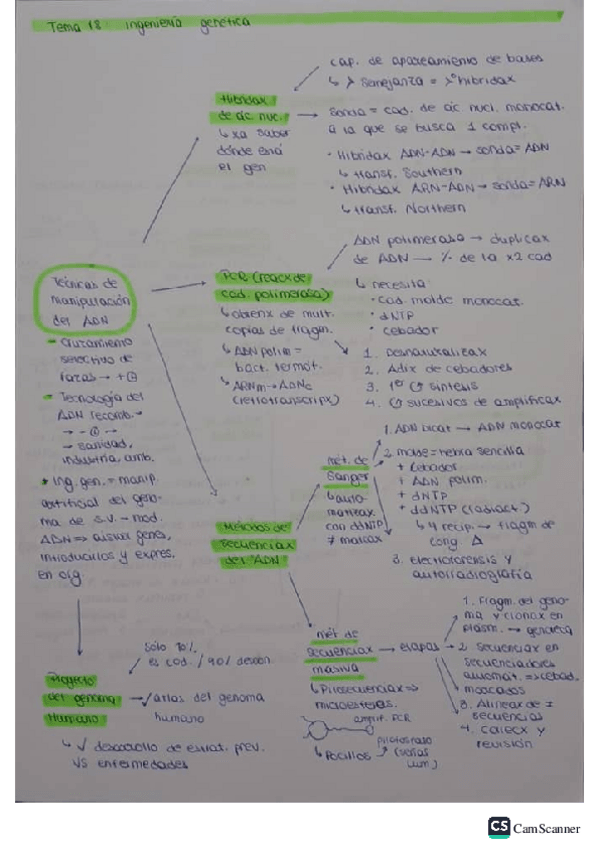 Tema 18: ingeniería genética
Técnicas de
manipulación
del ADN
- Cruzamiento
selectivo de
razas → +
- Tecnología del
ADN recomb. →
→ sanidad,
industria, amb.
* Ing. gen. = manip.
artificial del geno-
ma de s.v. - mod.
ADN => aislar genes,
introducirlos y expres.
en org
Hibridax
de ác. nuc.
↳ xa saber
dónde está
el gen
cap. de apareamiento de bases
↳ > semejanza = >º hibridax
Sonda = cad. de ác. nucl. monocat.
a la que se busca 1 compl.
· Hibridax ADN-ADN → sonda = ADN
↳ transf. Southern
· Hibridax ARN-ADN → sonda = ARN
↳ transf. Northern
PCR (reacx de
cad. polimerasa)
↳ obtenx de mult.
copias de fragm.
↳ ADN polim =
bact. termof.
↳ ARNm → ADNc
(retrotranscripx)
ADN polimerasa → duplicax
de ADN → % de la x2 cad
↳ necesita
· cad. molde monocat.
· dNTP
· cebador
1. Desnaturalizax
2. Adix de cebadores
3. 1er síntesis
4. sucesivos de amplificax
Métodos de
secuenciax
del ADN
mét. de
Sanger
↳ auto-
matizax.
con ddNTP
≠ marcax
1. ADN bicat → ADN monocat
2 molde = hebra sencilla
+ cebador
+ ADN polim.
+ dNTP
+ ddNTP (radiact.)
↳ 4 recip. → fragm de
long Δ
3. Electroforesis y
autorradiografía
mét de
secuenciax
masiva
↳ Pirosecuenciax =>
microesferas.
amplif. PCR
↳ Pocillos
pirofosfato
(señal
lum)
etapas
1. Fragm. del geno-
ma y clonax en
plásm. → genoteca
2. Secuenciax en
secuenciadores
automat. => cebad.
marcados
3. Alinear de ≠
secuencias
4. Correcx y
revisión
Proyecto
del genoma
Humano
Sólo 10%
es cod. / 90% descon.
→ atlas del genoma
humano
↳ √ desarrollo de estrat. prev.
VS enfermedades
CS CamScanner